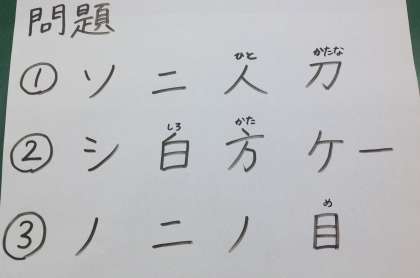 問題
① ソ ニ 人 刀
ひと かたな
② シ 白 方 ケ ー
しろ かた
③ ノ ニ ノ 目
め